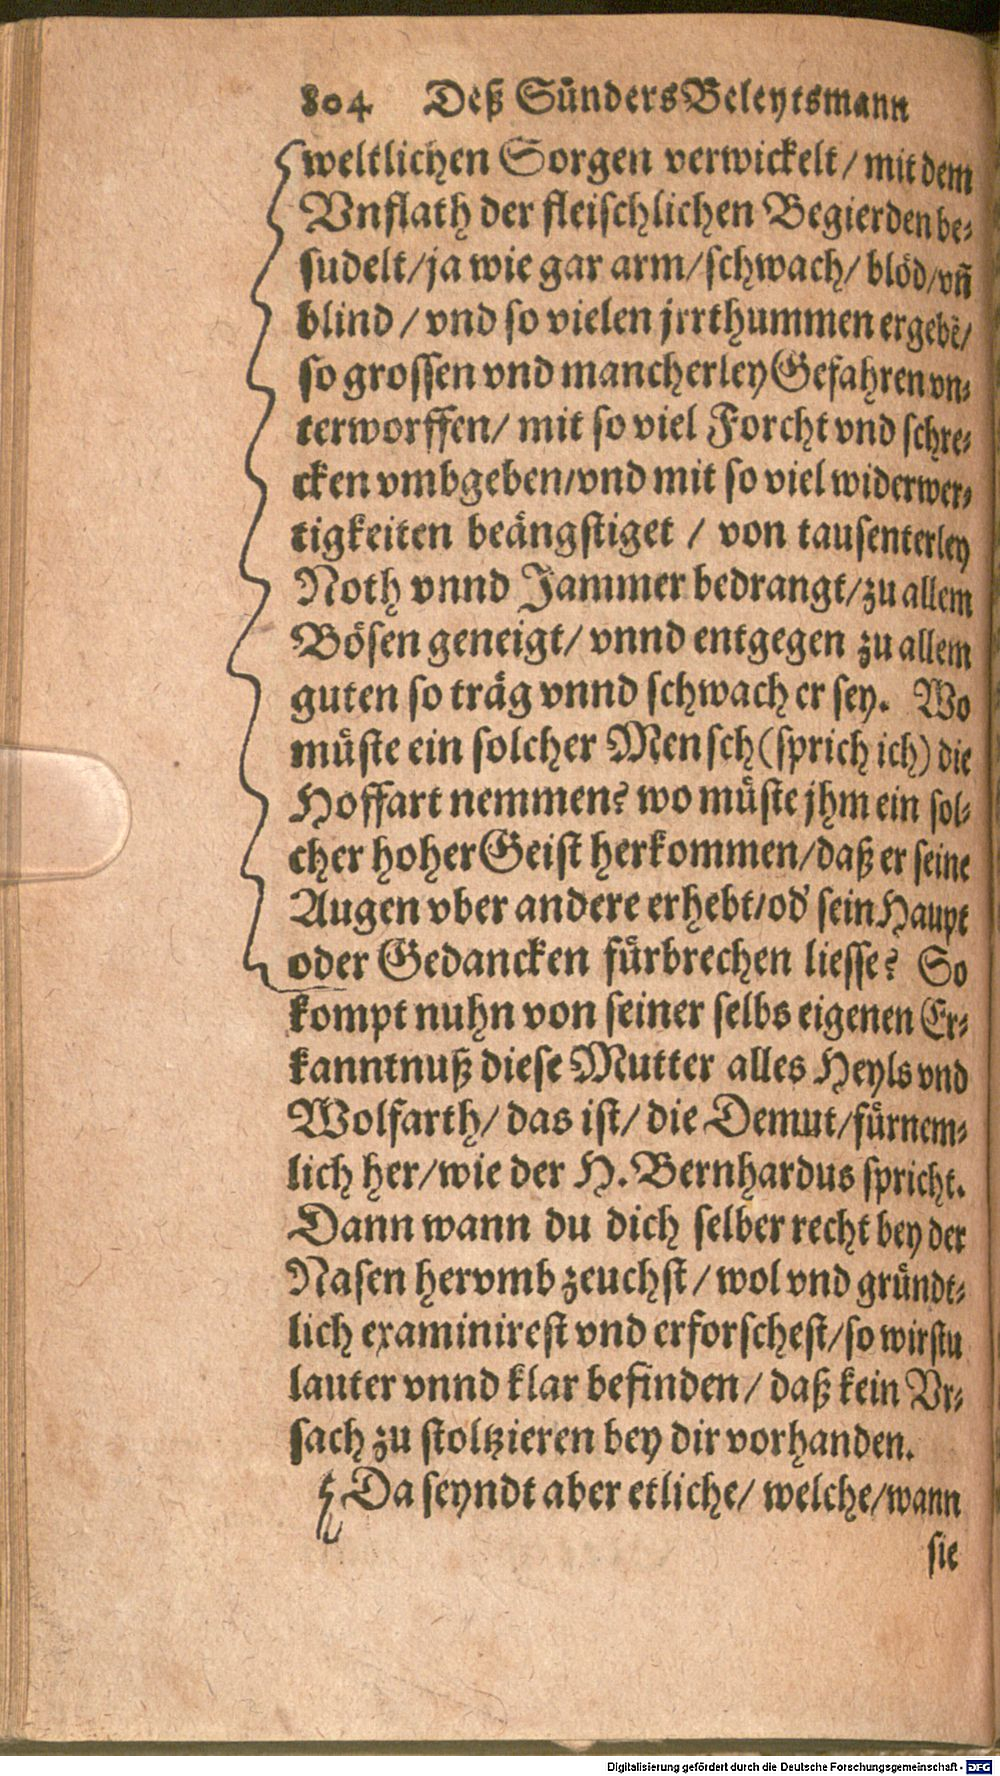 804 Deß Sünders Beleytsmann
weltlichen Sorgen verwickelt / mit dem
Vnflath der fleischlichen Begierden be-
sudelt / ja wie gar arm / schwach / blöd / vñ
blind / vnd so vielen jrrthummen ergebẽ /
so grossen vnd mancherley Gefahren vn-
terworffen / mit so viel Forcht vnd schre-
cken vmbgeben / vnd mit so viel widerwer-
tigkeiten beängstiget / von tausenterley
Noth vnnd Jammer bedrangt / zu allem
Bösen geneigt / vnnd entgegen zu allem
guten so träg vnnd schwach er sey. Wo
müste ein solcher Mensch (sprich ich) die
Hoffart nemmen? wo müste jhm ein sol-
cher hoher Geist herkommen / daß er seine
Augen vber andere erhebt / od' sein Haupt
oder Gedancken fürbrechen liesse? So
kompt nuhn von seiner selbs eigenen Er-
kanntnuß diese Mutter alles Heyls vnd
Wolfarth / das ist / die Demut / fürnem-
lich her / wie der H. Bernhardus spricht.
Dann wann du dich selber recht bey der
Nasen hervmb zeuchst / wol vnd gründt-
lich examinirest vnd erforschest / so wirstu
lauter vnnd klar befinden / daß kein Vr-
sach zu stoltzieren bey dir vorhanden.
Da seyndt aber etliche / welche / wann
sie
Digitalisierung gefördert durch die Deutsche Forschungsgemeinschaft - DFG